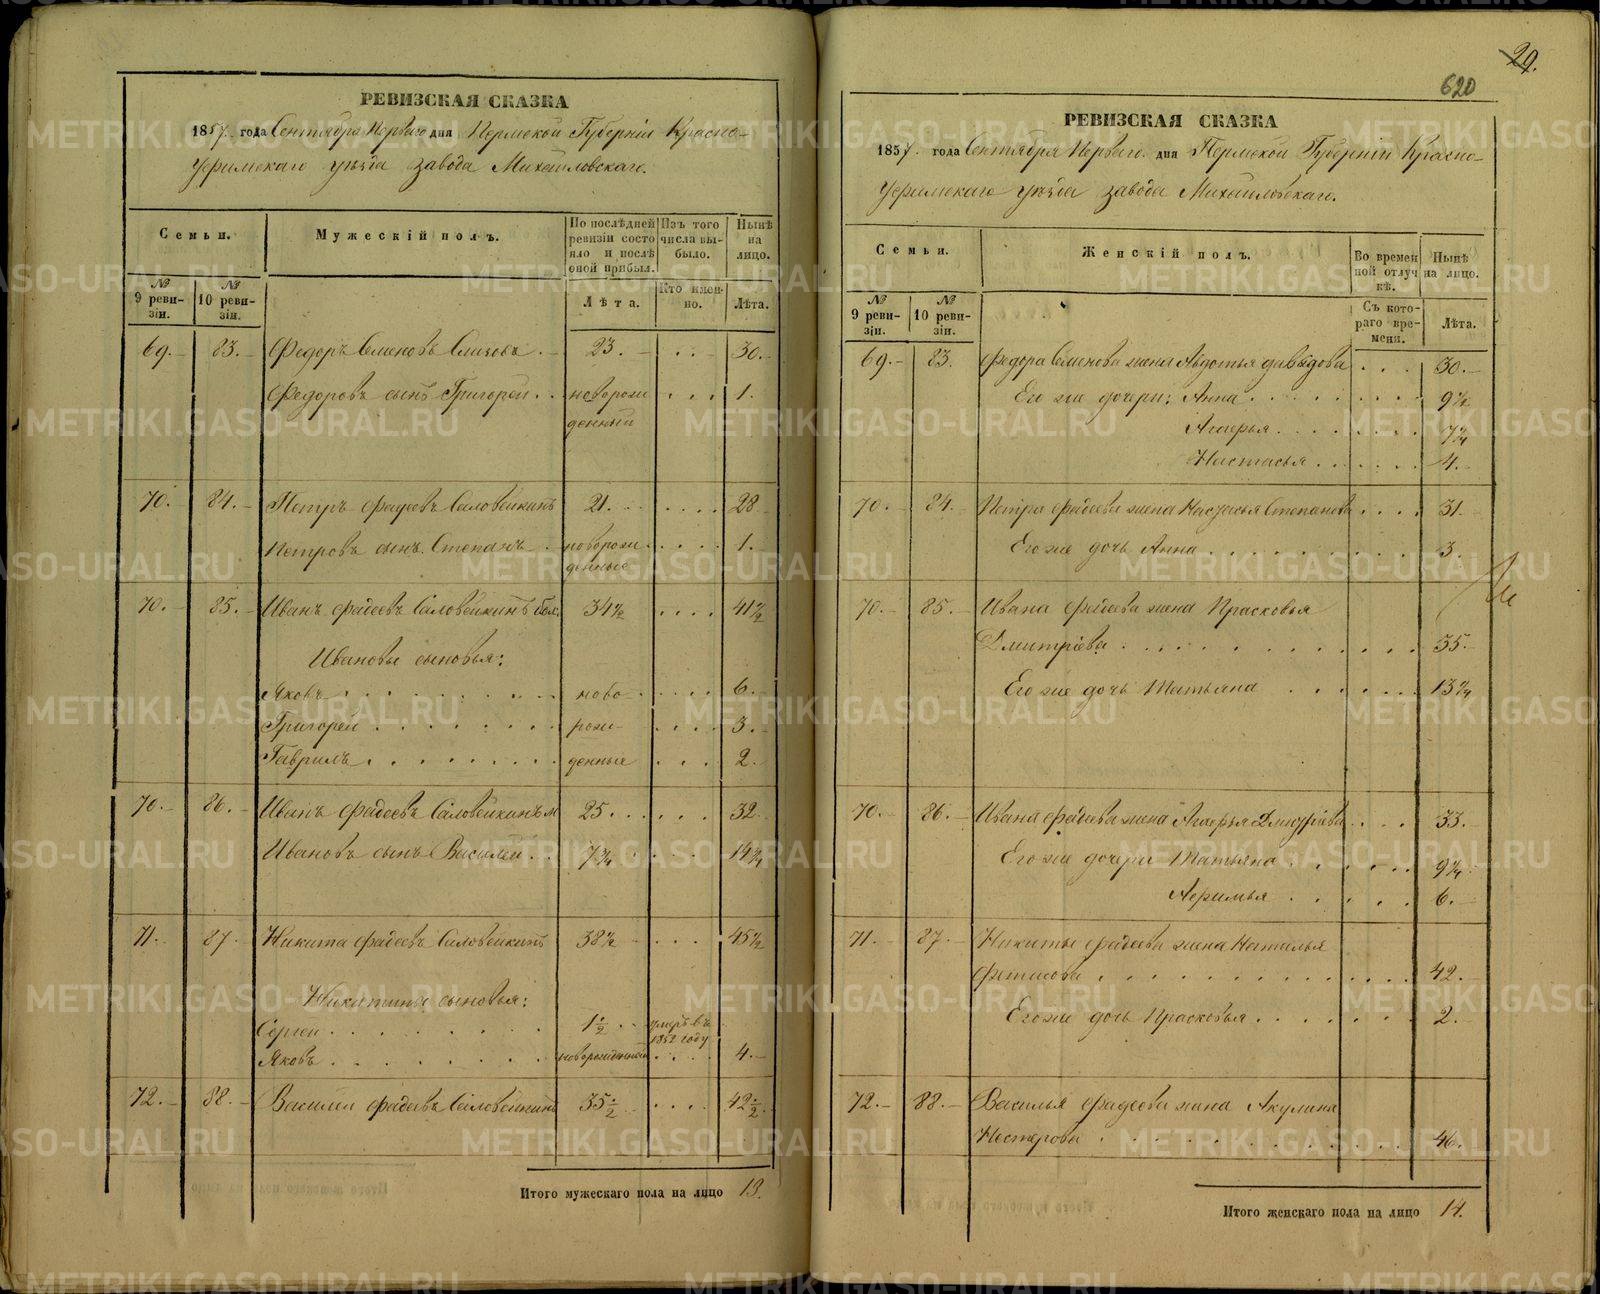 РЕВИЗСКАЯ СКАЗКА
1857. года Сентября Перваго дня Пермской Губерніи Красно-
уфимскаго уѣзда завода Михайловскаго.
Семьи.
Мужескій полъ.
По послѣдней ревизіи состояло и послѣ оной прибыл.
Изъ того числа выбыло.
Нынѣ на лицо.
№ 9 ревизіи.
№ 10 ревизіи.
Лѣта.
Кто именно.
Лѣта.
69. 83. Федоръ Семеновъ 23. 30.
Федоровъ сынъ Григорей новорожденный 1.
70. 84. Петръ Фадеевъ Саловейкинъ 21. 28
Петровъ сынъ Степанъ новорожденные 1.
70. 85. Иванъ Фадеевъ Саловейкинъ бол. 34½ 41½
Ивановы сыновья:
Яковъ ново 6.
Григорей рож- 3.
Гаврилъ денные 2.
70. 86. Иванъ Фадеевъ Саловейкинъ м 25 32
Ивановъ сынъ Василей 7¾ 14¾
71. 87. Никита Фадеевъ Саловейкинъ 38½ 45½
Никитины сыновья:
Сергей 1½ умеръ въ 1852 году
Яковъ новорожденный 4.
72. 88. Василей Фадеевъ Саловейкинъ 35½ 42½
Итого мужескаго пола на лицо 13.
29.
620
РЕВИЗСКАЯ СКАЗКА
1857. года Сентября Перваго. дня Пермской Губерніи Красно-
уфимскаго уѣзда завода Михайловскаго.
Семьи.
Женскій полъ.
Во временной отлучкѣ.
Нынѣ на лицо.
№ 9 ревизіи.
№ 10 ревизіи.
Съ котораго времени.
Лѣта.
69. 83. Федора Семенова жена Авдотья Давыдова 30.
Его же дочери: Анна 9½
Агафья 7¾
Настасья 4.
70. 84. Петра Фадеева жена Настасья Степанова 31.
Его же дочь Анна 3.
70. 85. Ивана Фадеева жена Прасковья
Дмитріева 35.
Его же дочь Татьяна 13¾
70. 86. Ивана Фадеева жена Агафья Дмитріева 33.
Его же дочери Татьяна 9¼
Афимья 6.
71. 87. Никиты Фадеева жена Наталья
Фетисова 42.
Его же дочь Прасковья 2.
72. 88. Василья Фадеева жена Акулина
Нестерова 46.
Итого женскаго пола на лицо 14.
METRIKI.GASO-URAL.RU